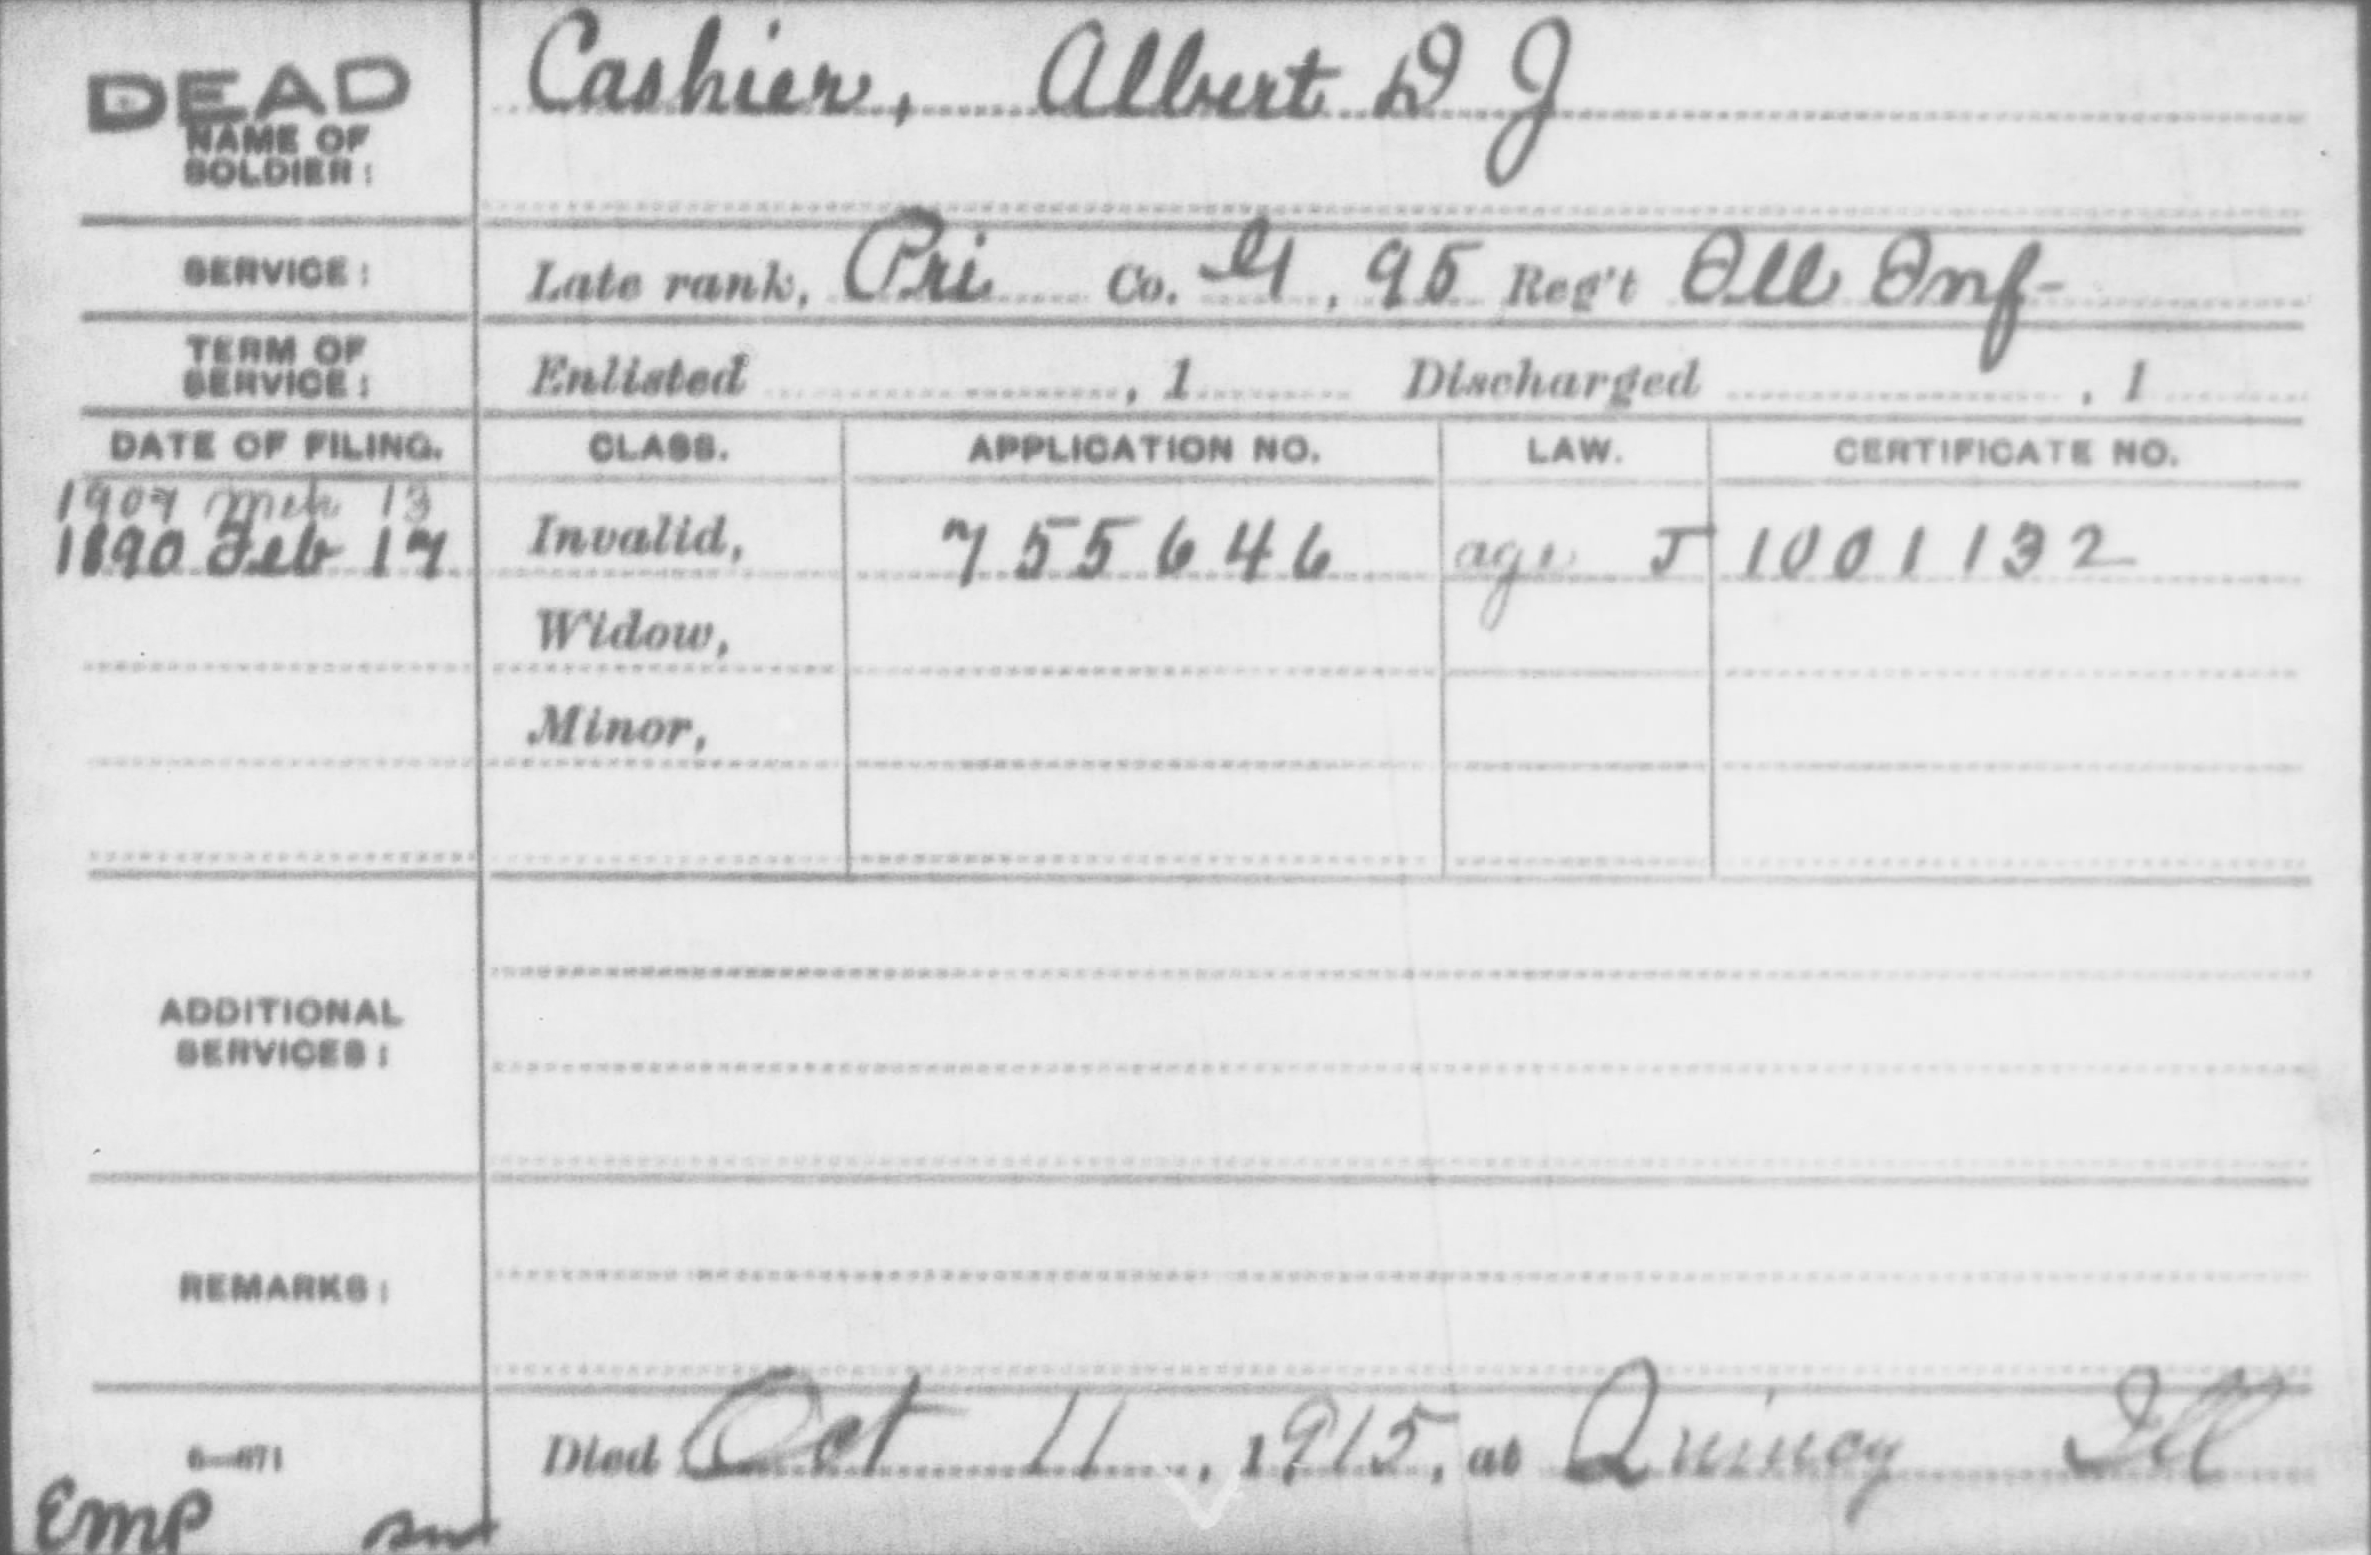 DEAD
Cashier, Albert D J
NAME OF
SOLDIER:
SERVICE: Late rank, Pri Co. G, 95 Reg't Ill Inf-
TERM OF
SERVICE: Enlisted , 1 Discharged , 1
DATE OF FILING. CLASS. APPLICATION NO. LAW. CERTIFICATE NO.
1907 Mch 13
1890 Feb 17 Invalid, 755646 age J 1001132
Widow,
Minor,
ADDITIONAL
SERVICES:
REMARKS:
6—671 Died Oct 11, 1915, at Quincy Ill
Emp